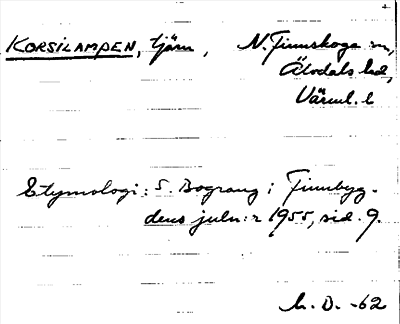 KORSILAMPEN, tjärn, N. Finnskoga sn,
Älvdals hd,
Värml. l
Etymologi: S. Bograng i Finnbyg-
dens juln:r 1955, sid. 9.
L. D. -62